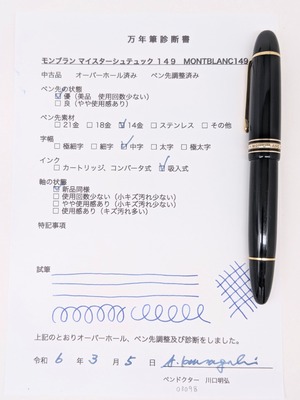 万年筆診断書
モンブラン マイスターシュテュック 149 MONTBLANC149
中古品 オーバーホール済み ペン先調整済み
ペン先の状態
☑優（美品 使用回数少ない）
□良（やや使用感あり）
ペン先素材
□21金 □18金 ☑14金 □ステンレス □その他
字幅
□極細字 □細字 ☑中字 □太字 □極太字
インク
□カートリッジ、コンバータ式 ☑吸入式
軸の状態
☑新品同様
□使用回数少ない（小キズ汚れ少ない）
□やや使用感あり（小キズ汚れ少ない）
□使用感あり（キズ汚れ多い）
特記事項
試筆
上記のとおりオーバーホール、ペン先調整及び診断をしました。
令和 6 年 3 月 5 日 A. Kawaguchi
ペンドクター 川口明弘